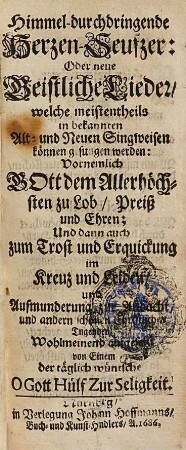 Himmel-durchdringende
Herzen-Seufzer:
Oder neue
Geistliche Lieder/
welche meistentheils
in bekannten
Alt- und Neuen Singweisen
können gesungen werden:
Vornemlich
GOtt dem Allerhöch-
sten zu Lob/ Preiß
und Ehren;
Und dann auch
zum Trost und Erquickung
im
Kreuz und Leiden/
und
Aufmunderung zur Andacht
und andern
Tugenden/
Wohlmeinend
von Einem
der täglich wünsche
O GOtt Hülf Zur Seligkeit.
Nürnberg/
in Verlegung Johann Hoffmanns/
Buch- und Kunst-Händlers/ A. 1686.